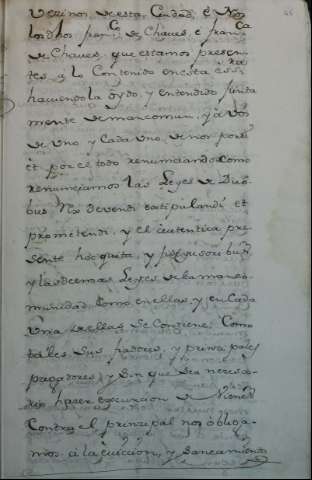 Vezinos desta Ciudad, e Nos
los dhos fran.co de Chaves, e fran.ca
de Chaves, que estamos presen-
tes, a lo Contenido en esta escri.ra
haviendola oydo, y entendido junta
mente de mancomun, y a vos
de uno, y Cada uno de nos por si
et por el todo renunciando como
renunciamos las Leyes de Duo-
bus Rex devendi estipulandi et
prometendi, y el autentica pre-
sente hoc quita, y fide usoribus,
y las demas Leyes de la manco-
munidad Como en ellas, y en Cada
una de ellas se Contiene, Como
tales sus fiadores, y principales
pagadores, y sin que sea nesesa-
rio hazer execucion de Vienes
Contra el principal nos obliga-
mos a la eviccion, y saneamiento